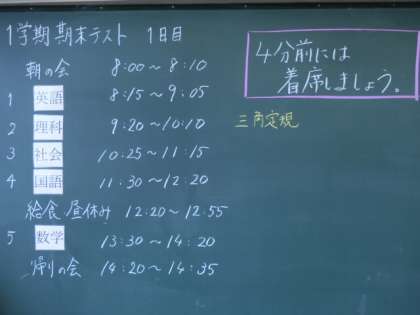 1学期期末テスト 1日目
朝の会 8:00～8:10
1 英語 8:15～9:05
2 理科 9:20～10:10
3 社会 10:25～11:15
4 国語 11:30～12:20
給食 昼休み 12:20～12:55
5 数学 13:30～14:20
帰りの会 14:20～14:35
4分前には
着席しましょう。
三角定規